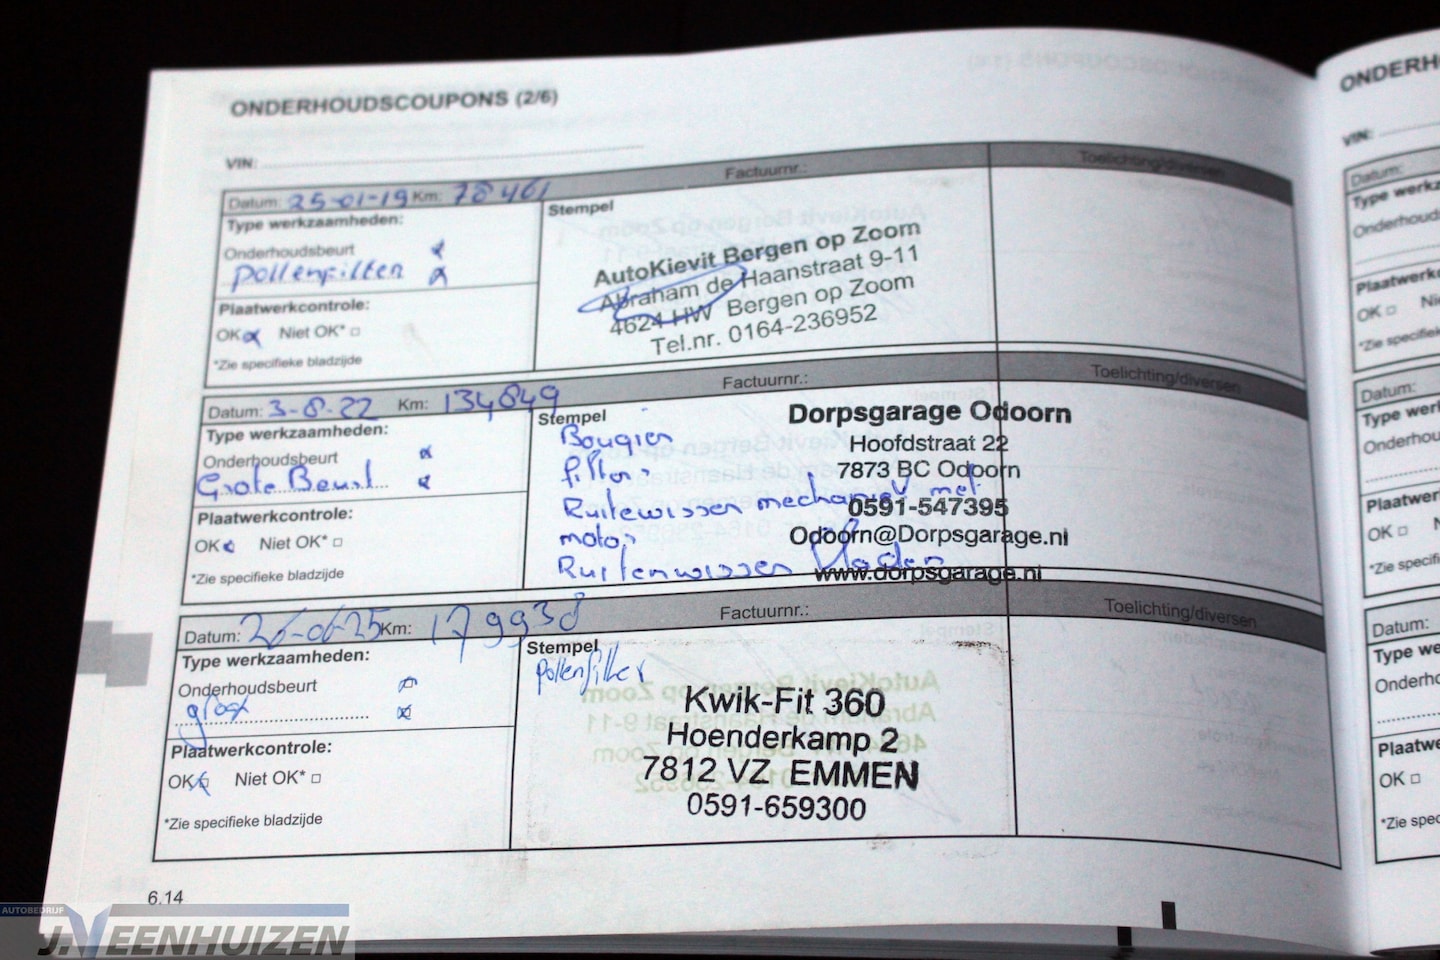 ONDERHOUDSCOUPONS (2/6)
VIN:
Datum: 25-01-19 Km: 78461 Factuurnr.: Toelichting/diversen
Type werkzaamheden:
Onderhoudsbeurt
pollenfilter
Plaatwerkcontrole:
OK Niet OK*
*Zie specifieke bladzijde
Stempel
AutoKievit Bergen op Zoom
Abraham de Haanstraat 9-11
4624 HW Bergen op Zoom
Tel.nr. 0164-236952
Datum: 3-8-22 Km: 134849 Factuurnr.: Toelichting/diversen
Type werkzaamheden:
Onderhoudsbeurt
Grote Beurt
Plaatwerkcontrole:
OK Niet OK*
*Zie specifieke bladzijde
Stempel
Bougies
filters
Ruitewissen mechaniek met
motor
Ruitenwissen bladen
Dorpsgarage Odoorn
Hoofdstraat 22
7873 BC Odoorn
0591-547395
Odoorn@Dorpsgarage.nl
www.dorpsgarage.nl
Datum: 26-06-25 Km: 179938 Factuurnr.: Toelichting/diversen
Type werkzaamheden:
Onderhoudsbeurt
groot
Plaatwerkcontrole:
OK Niet OK*
*Zie specifieke bladzijde
Stempel
pollenfilter
Kwik-Fit 360
Hoenderkamp 2
7812 VZ EMMEN
0591-659300
6.14
ONDERH
VIN:
Datum:
Type werkz
Onderhouds
Plaatwerk
OK Ni
*Zie specifiek
Datum:
Type werk
Onderhoud
Plaatwer
OK
*Zie speci
Datum:
Type we
Onderho
Plaatw
OK
*Zie s
AUTOBEDRIJF
J.VEENHUIZEN